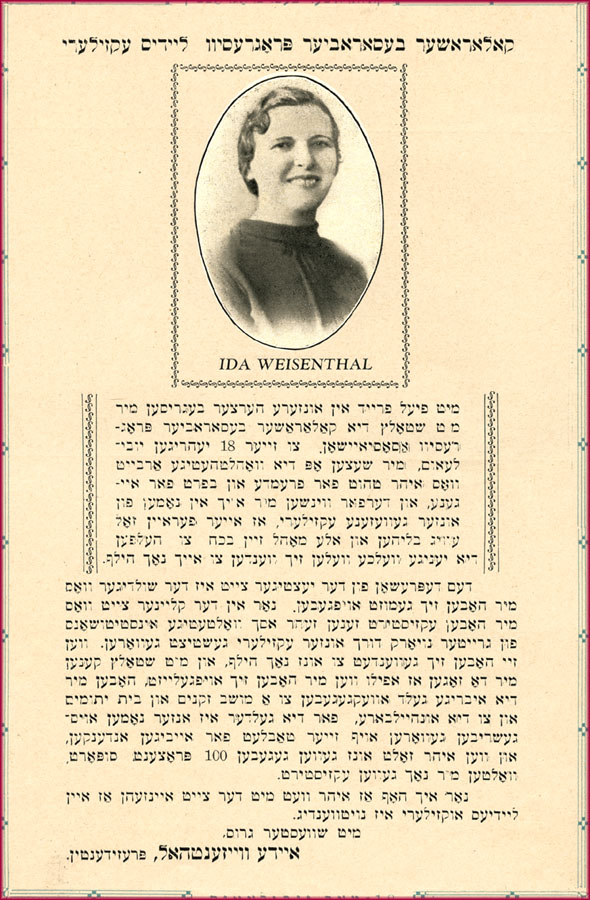 קאלאראשער בעסאראביער פראָגרעסיוו ליידיס עקזילערי
IDA WEISENTHAL
מיט פיעל פרייד אין אונזערע הערצער בעגריסען מיר
מיט שטאלץ דיא קאלאראשער בעסאראביער פראָג־
רעסיוו אססאסיאיישאן. צו זייער 18 יעהריגען יובי־
לעאום, מיר שעצען אָפּ דיא וואהלטהעטיגע ארבייט
וואס איהר טהוט פאר פרעמדע און בפרט פאר איי־
גענע, און דערפאר ווינשען מיר אייך אין נאמען פון
אונזער געוועזענע עקזילערי, אז אייער פעראיין זאָל
עוויג בליהען און אלע מאָהל זיין בכח צו העלפען
דיא יעניגע וועלכע וועלען זיך ווענדען צו אייך נאָך הילף.
דעם דעפּרעשאן פון דער יעצטיגער צייט איז דער שולדיגער וואס
מיר האָבען זיך געמוזט אויפגעבען. נאָר אין דער קליינער צייט וואס
מיר האָבען עקזיסטירט זענען זעהר אסך וואלטעטיגע אינסטיטושאנס
פון גרייטער נויארק דורך אונזער עקזילערי געשטיצט געוואָרען. ווען
זיי האָבען זיך געווענדעט צו אונז נאָך הילף, און מיט שטאלץ קענען
מיר דאָ זאָגען אז אפילו ווען מיר האָבען זיך אויפגעלייזט, האָבען מיר
דיא איבריגע געלד אוועקגעגעבען צו א מושב זקנים און בית יתומים
און צו דיא אונהיילבארע, פאר דיא געלדער איז אנזער נאמען אויס־
געשריבען געוואָרען אויף זייער טאבלעט פאר אייביגען אנדענקען,
און ווען איהר זאָלט אונז געווען געגעבען 100 פּראָצענט סופּאָרט,
וואָלטען מיר נאָך געווען עקזיסטירט.
נאָר איך האָף אז איהר וועט מיט דער צייט איינזעהן אז איין
ליידיעס אוקזילערי איז נויטווענדיג.
מיט שוועסטער גרוס,
איידע ווייזענטהאל, פּרעזידענטין.